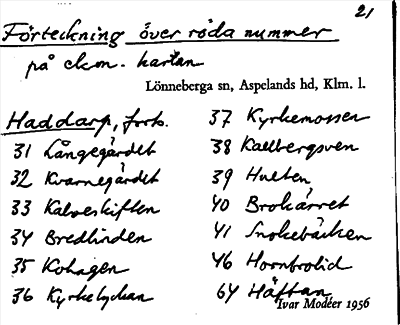 21
Förteckning över röda nummer
på ekon. kartan
Lönneberga sn, Aspelands hd, Klm. l.
Haddarp, forts.
31 Långegärdet
32 Kvarnegärdet
33 Kalveskiften
34 Bredlinden
35 Kohagen
36 Kyrkelyckan
37 Kyrkemossen
38 Kallbergsven
39 Hulten
40 Brokärret
41 Snokebäcken
46 Hornbolid
64 Häftan
Ivar Modéer 1956